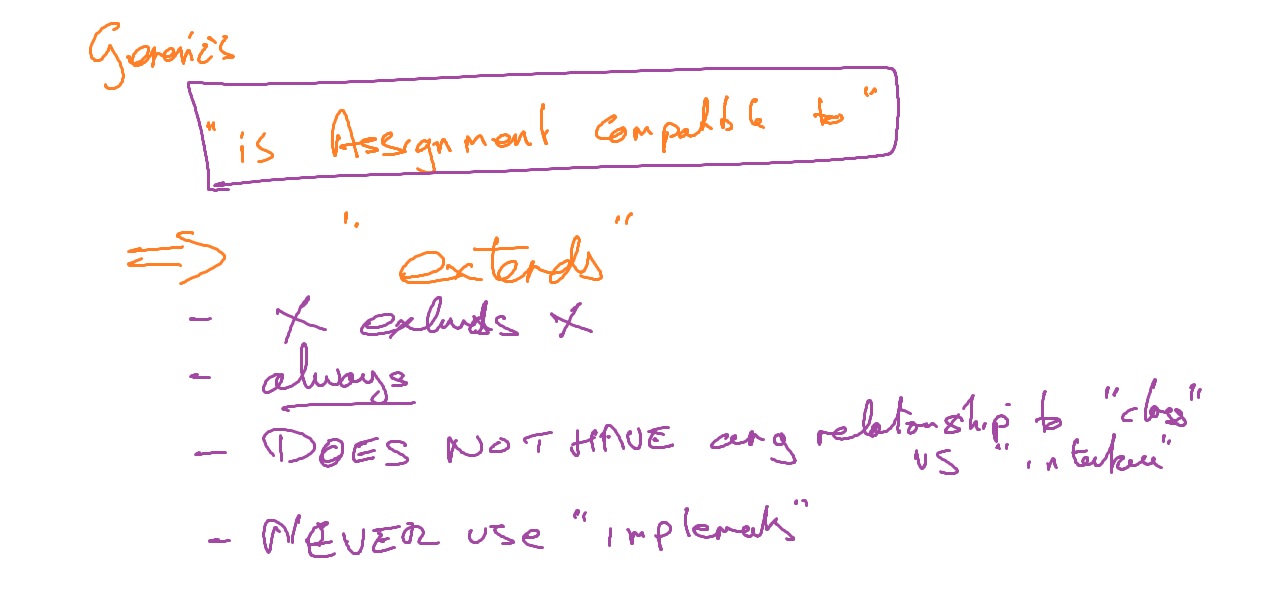 Generics
"is Assignment compatible to"
⇒ "extends"
- X extends X
- always
- DOES NOT HAVE any relationship to "class"
vs "interface"
- NEVER use "implements"